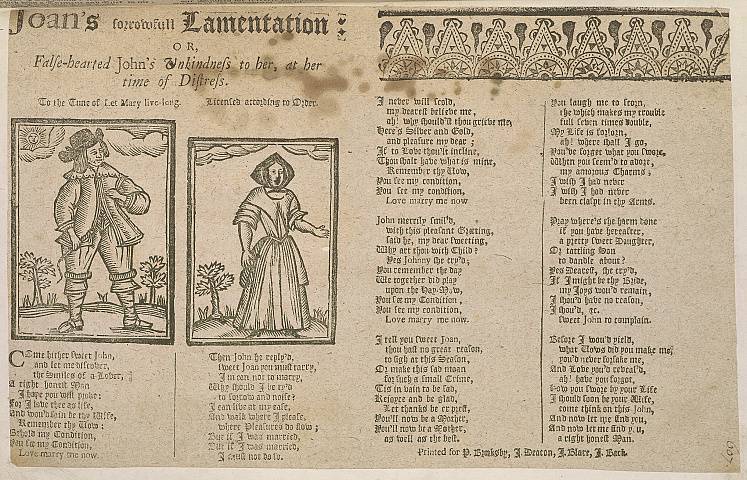 Joan's sorrowfull Lamentation:
OR,
False-hearted John's Unkindness to her, at her
time of Distress.
To the Tune of Let Mary live long. Licensed according to Order.
Come hither sweet John,
and let me discover,
the Smiles of a Lover,
A right honest Man
I hope you will prove:
For I love thee as life,
And would fain be thy Wife,
Remember thy Vow:
Behold my Condition,
You see my Condition,
Love marry me now.
Then John he reply'd,
sweet Joan you must tarry,
I'm not to marry,
Why should I be ty'd
to sorrow and noise?
I can live at my ease,
And walk where I please,
where Pleasures do flow;
But if I was married,
But if I was married,
I must not do so.
I never will scold,
my dearest believe me,
ah! why should'st thou grieve me,
Here's Silver and Gold,
and pleasure my dear;
If to Love thou'lt incline,
Thou shalt have what is mine,
Remember thy Vow,
You see my condition,
You see my condition,
Love marry me now
John merrily smil'd,
with this pleasant Greeting,
said he, my dear sweeting,
Why art thou with Child?
Yes Johnny she cry'd;
You remember the day
We together did play
upon the Hay-Mow,
You see my Condition,
You see my condition,
Love marry me now.
I tell you sweet Joan,
thou hast no great reason,
to sigh at this Season,
Or make this sad moan
for such a small Crime,
Tis in vain to be sad,
Rejoyce and be glad,
Let thanks be exprest,
You'll now be a Mother,
You'll now be a Mother,
as well as the best.
You laugh me to scorn,
the which makes my trouble
full seven times double,
My Life is forlorn,
ah! where shall I go,
You've forget what you swore,
When you seem'd to adore,
my amorous Charms;
I wish I had never
I wish I had never
been claspt in thy Arms.
Pray where's the harm done
if you have hereafter,
a pretty sweet Daughter,
Or tattling Son
to dandle about?
Yes Dearest, she cry'd,
If I might be thy Bride,
my Joys wou'd remain,
I shou'd have no reason,
I shou'd, &c.
sweet John to complain.
Before I wou'd yield,
what Vows did you make me,
you'd never forsake me,
And Love you'd reveal'd,
ah! have you forgot,
How you swore by your Life
I should soon be your Wife,
come think on this John,
And now let me find you,
And now let me find you,
a right honest Man.
Printed for P. Brooksby, J. Deacon, J. Blare, J. Back.